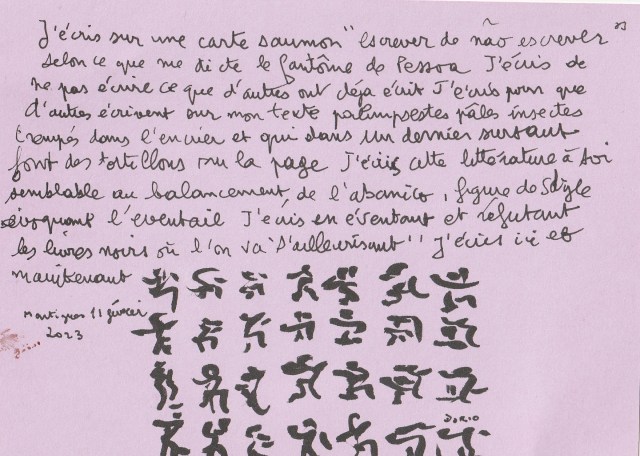 J'écris sur une carte saumon "escrever de não escrever"
selon ce que me dicte le fantôme de Pessoa J'écris de
ne pas écrire ce que d'autres ont déja écrit J'écris pour que
d'autres écrivent sur mon texte palimpsestes pâles insectes
trempés dans l'encrier et qui dans un dernier sursaut
font des tortillons sur la page J'écris cette littérature à soi
semblable au balancement de l'abanico, figure de style
évoquant l'éventail J'écris en éventant et réfutant
les livres noirs où l'on va "s'ailleurisant" J'écris ici et
maintenant
Martigues 11 février
2023
DORIO